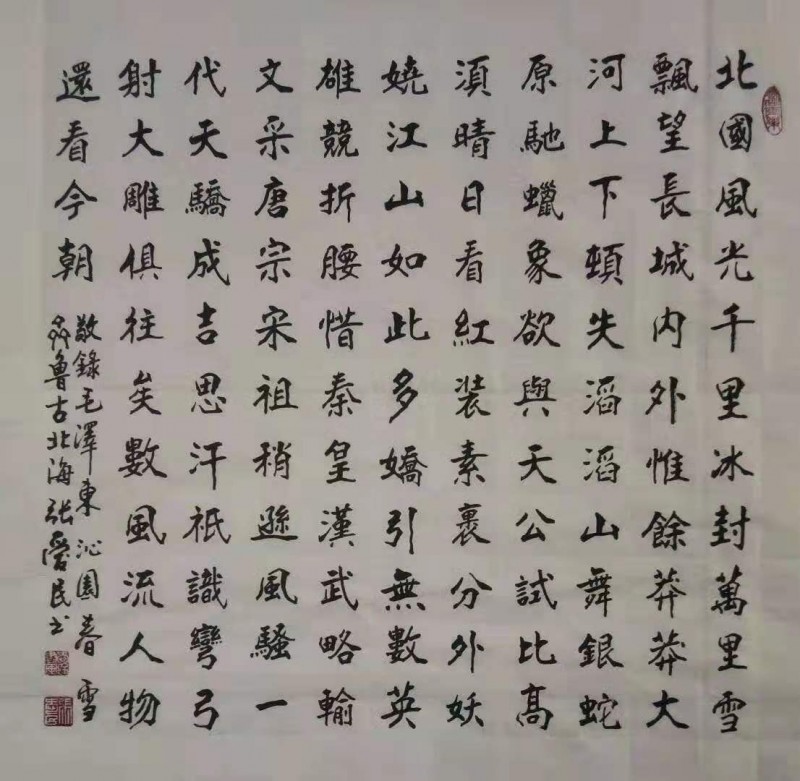 北國風光千里冰封萬里雪
飄望長城内外惟餘莽莽大
河上下頓失滔滔山舞銀蛇
原馳蠟象欲與天公試比高
須晴日看紅装素裹分外妖
嬈江山如此多嬌引無數英
雄競折腰惜秦皇漢武略輸
文采唐宗宋祖稍遜風騷一
代天驕成吉思汗衹識彎弓
射大雕俱往矣數風流人物
還看今朝
敬錄毛澤東沁園春雪
齊魯古北海張愛民书